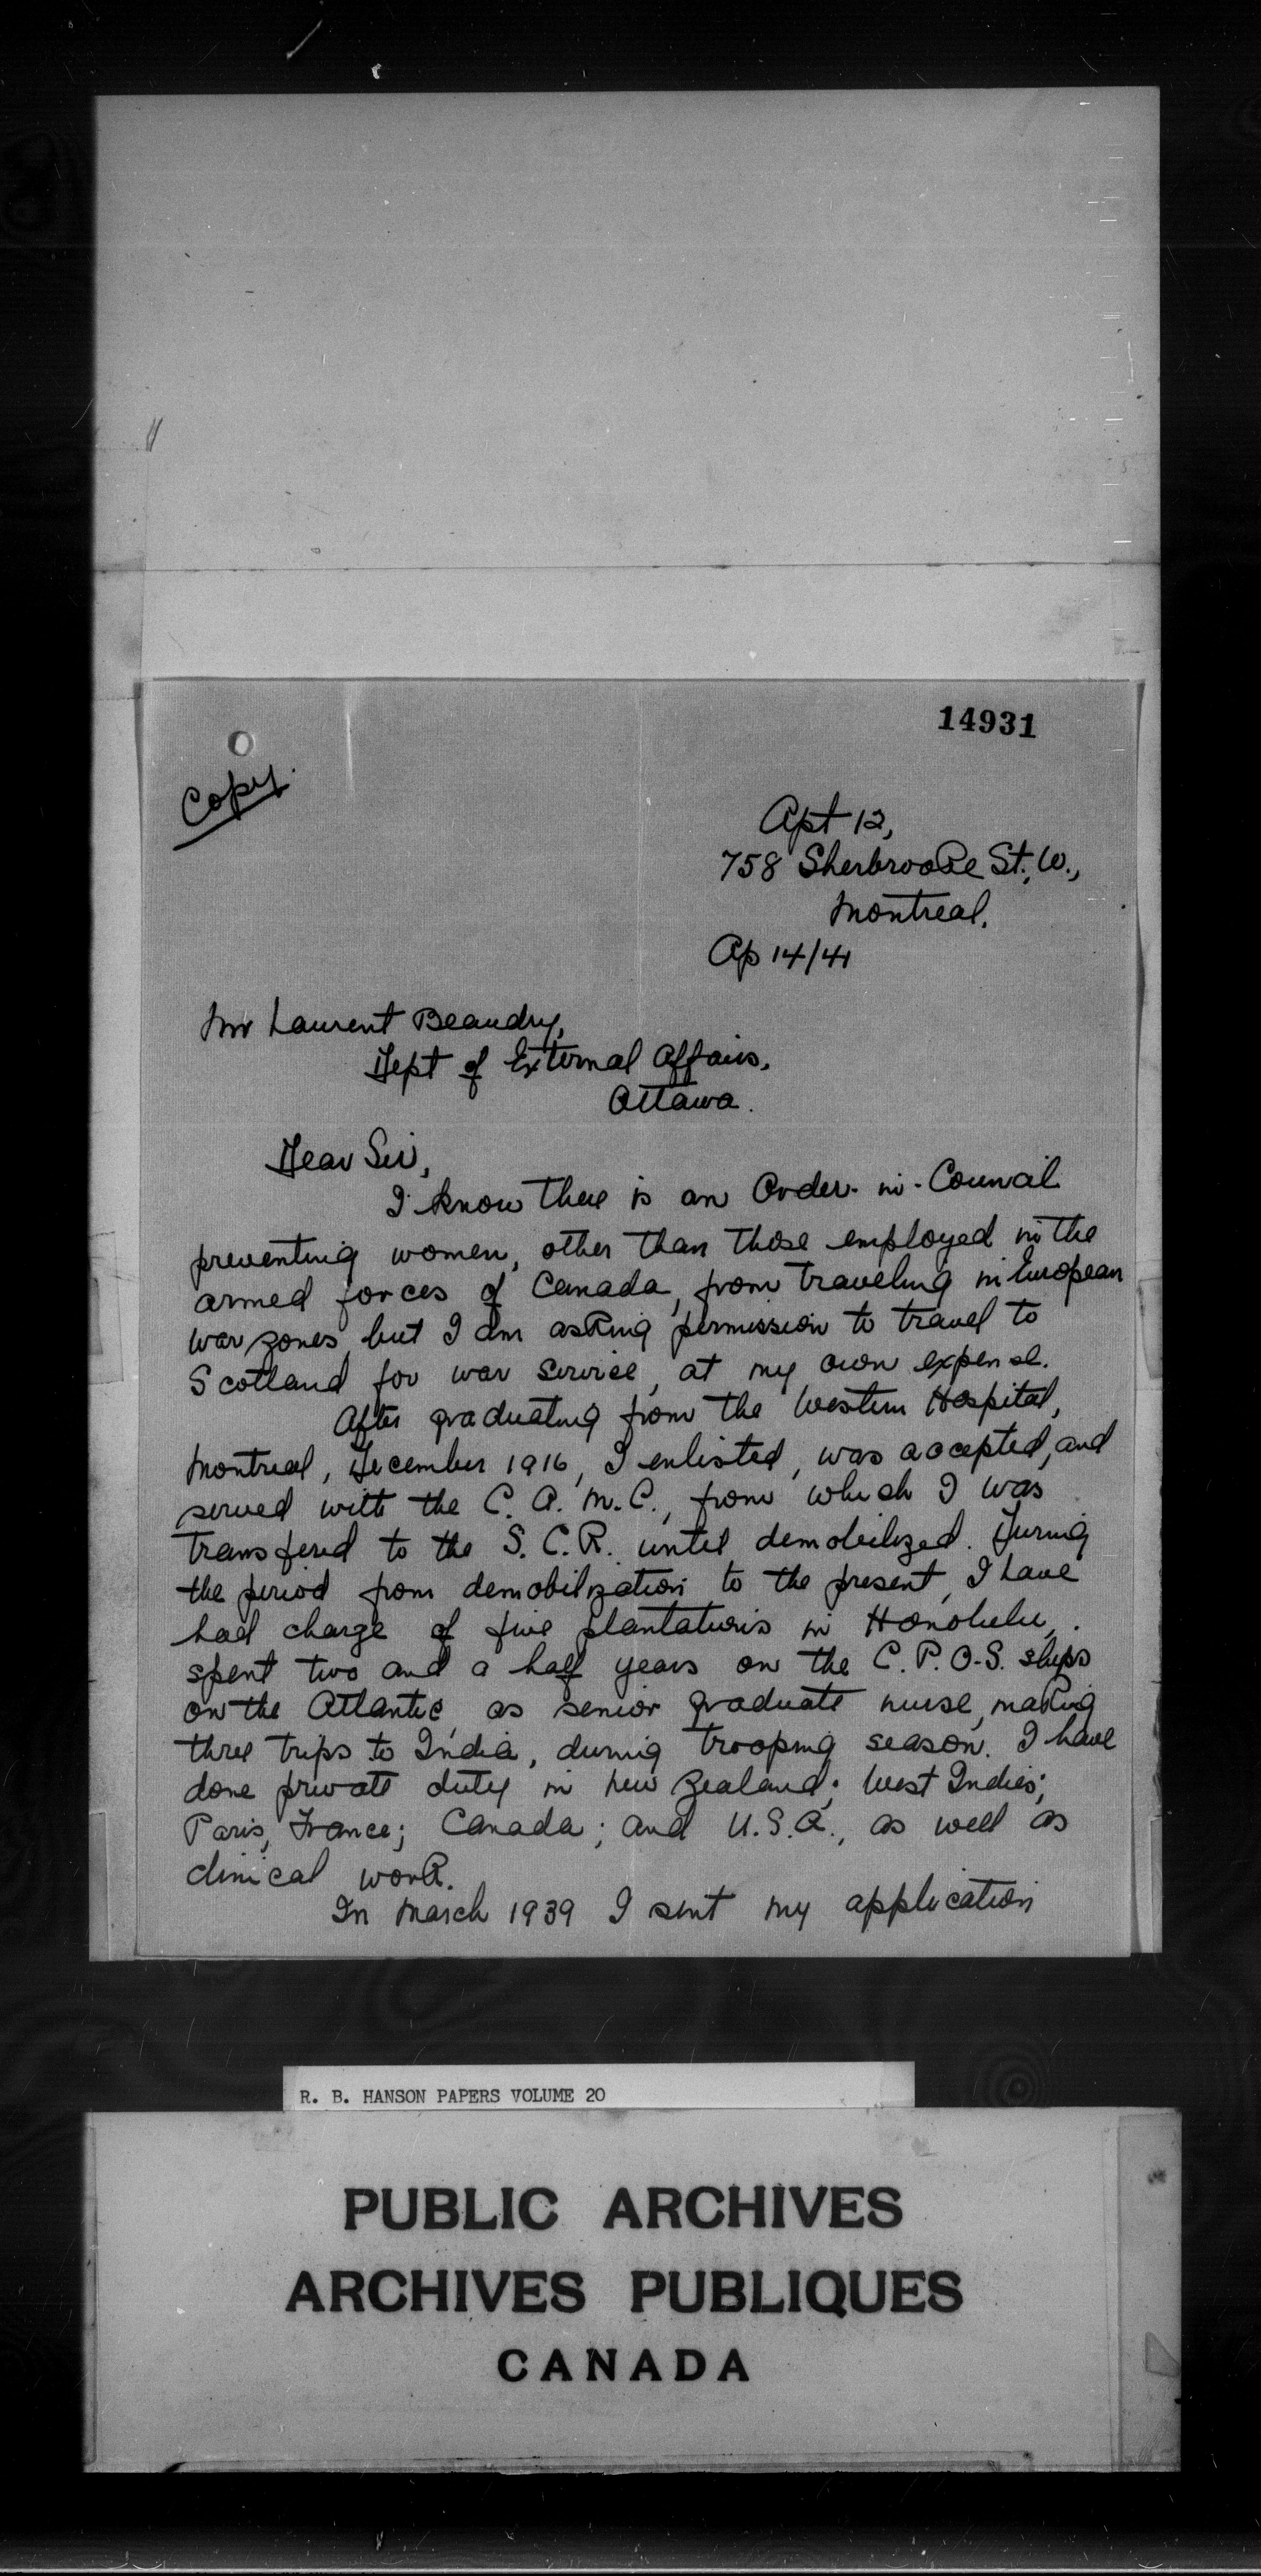 14931
Copy.
Apt 12,
758 Sherbrooke St., W.,
Montreal.
Ap 14/41
Mr Laurent Beaudry,
Dept of External Affairs,
Ottawa.
Dear Sir,
I know there is an Order-in-Council
preventing women, other than those employed in the
armed forces of Canada, from traveling in European
war zones, but I am asking permission to travel to
Scotland for war service, at my own expense.
After graduating from the Western Hospital,
Montreal, December 1916, I enlisted, was accepted, and
served with the C. A. M. C., from which I was
transfered to the S. C. R. until demobilized. During
the period from demobilization to the present, I have
had charge of five plantations in Honolulu,
spent two and a half years on the C. P. O-S. ships
on the Atlantic, as senior graduate nurse, making
three trips to India, during trooping season. I have
done private duty in New Zealand; West Indies;
Paris, France; Canada; and U.S.A., as well as
clinical work.
In March 1939 I sent my application
R. B. HANSON PAPERS VOLUME 20
PUBLIC ARCHIVES
ARCHIVES PUBLIQUES
CANADA